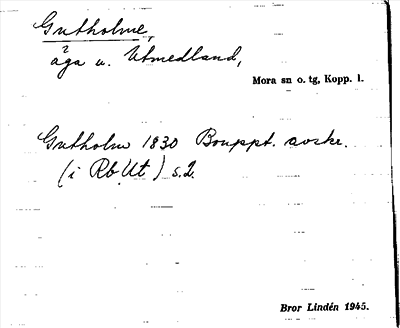 Gutholme,
äga u. Utmedland,
Mora sn o. tg, Kopp. l.
Gutholm 1830 Bouppt. avskr.
(i Rb Ut) s.2.
Bror Lindén 1945.